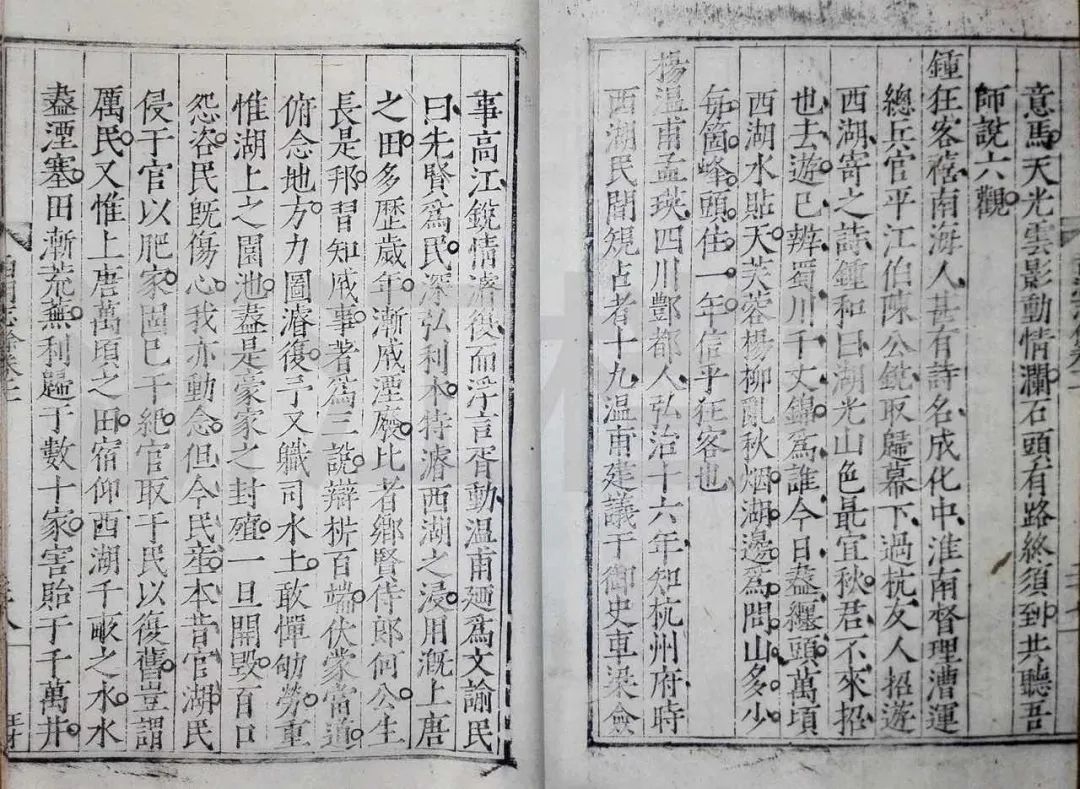 意馬天光雲影動情瀾石頭有路終須到共聽吾
師說六觀
鍾狂客禧南海人甚有詩名成化中淮南督理漕運
總兵官平江伯陳公銳取歸幕下過杭友人招遊
西湖寄之詩鍾和曰湖光山色最宜秋君不來招
也去遊已辨蜀川千丈錦爲誰今日盡纏頭萬頃
西湖水貼天芙蓉楊柳亂秋烟湖邊爲問山多少
每箇峰頭住一年信乎狂客也
楊溫甫孟瑛四川酆都人弘治十六年知杭州府時
西湖民間規占者十九溫甫建議于御史車梁僉
事高江銳情濬復而浮言胥動溫甫廼爲文諭民
曰先賢爲民深弘利本特濬西湖之浸用溉上唐
之田多歷歲年漸戚湮廢比者鄉賢侍郎何公生
長是邦習知戚事著爲三說辯析百端伏蒙當道
俯念地方力圖濬復予又職司水土敢憚劬勞重
惟湖上之園池盡是豪家之封殖一旦開毀百口
怨咨民既傷心我亦動念但今民產本昔官湖民
侵于官以肥家固已干紀官取于民以復舊豈謂
厲民又惟上唐萬頃之田宿仰西湖千畝之水水
盡湮塞田漸荒蕪利歸于數十家害貽于千萬井